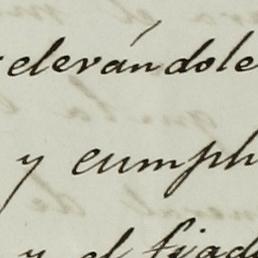 elevándole
y cumpli
y el fiad